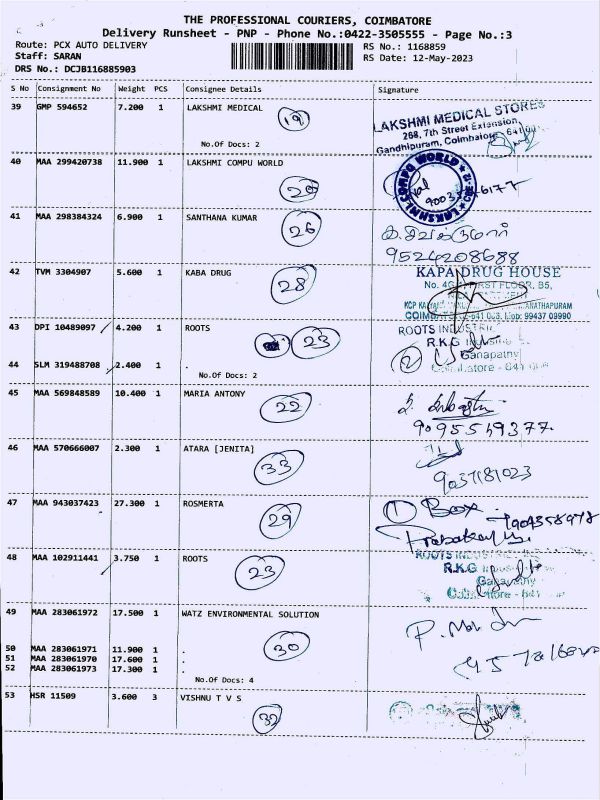 THE PROFESSIONAL COURIERS, COIMBATORE
Delivery Runsheet - PNP - Phone No.:0422-3505555 - Page No.:3
Route: PCX AUTO DELIVERY
RS No.: 1168859
Staff: SARAN
RS Date: 12-May-2023
DRS No.: DCJB116885903
S No Consignment No Weight PCS Consignee Details Signature
39 GMP 594652 7.200 1 LAKSHMI MEDICAL
19
LAKSHMI MEDICAL STORES
268, 7th Street Extension
Gandhipuram, Coimbatore
No.Of Docs: 2
40 MAA 299420738 11.900 1 LAKSHMI COMPU WORLD
LAKSHMI COMPU WORLD
41 MAA 298384324 6.900 1 SANTHANA KUMAR
26
9524208688
42 TVM 3304907 5.600 1 KABA DRUG
28
KAPA DRUG HOUSE
FIRST FLOOR, B5,
43 DPI 10489097 4.200 1 ROOTS
23
ROOTS
R.K.G
Ganapathy
2
44 SLM 319488708 2.400 1 .
No.Of Docs: 2
45 MAA 569848589 10.400 1 MARIA ANTONY
22
46 MAA 570666007 2.300 1 ATARA [JENITA]
33
9037181023
47 MAA 943037423 27.300 1 ROSMERTA
29
1 Box
48 MAA 102911441 3.750 1 ROOTS
23
ROOTS
R.K.G
Ganapathy
49 MAA 283061972 17.500 1 WATZ ENVIRONMENTAL SOLUTION
30
50 MAA 283061971 11.900 1 .
51 MAA 283061970 17.600 1 .
52 MAA 283061973 17.300 1 .
No.Of Docs: 4
53 HSR 11509 3.600 3 VISHNU T V S
32